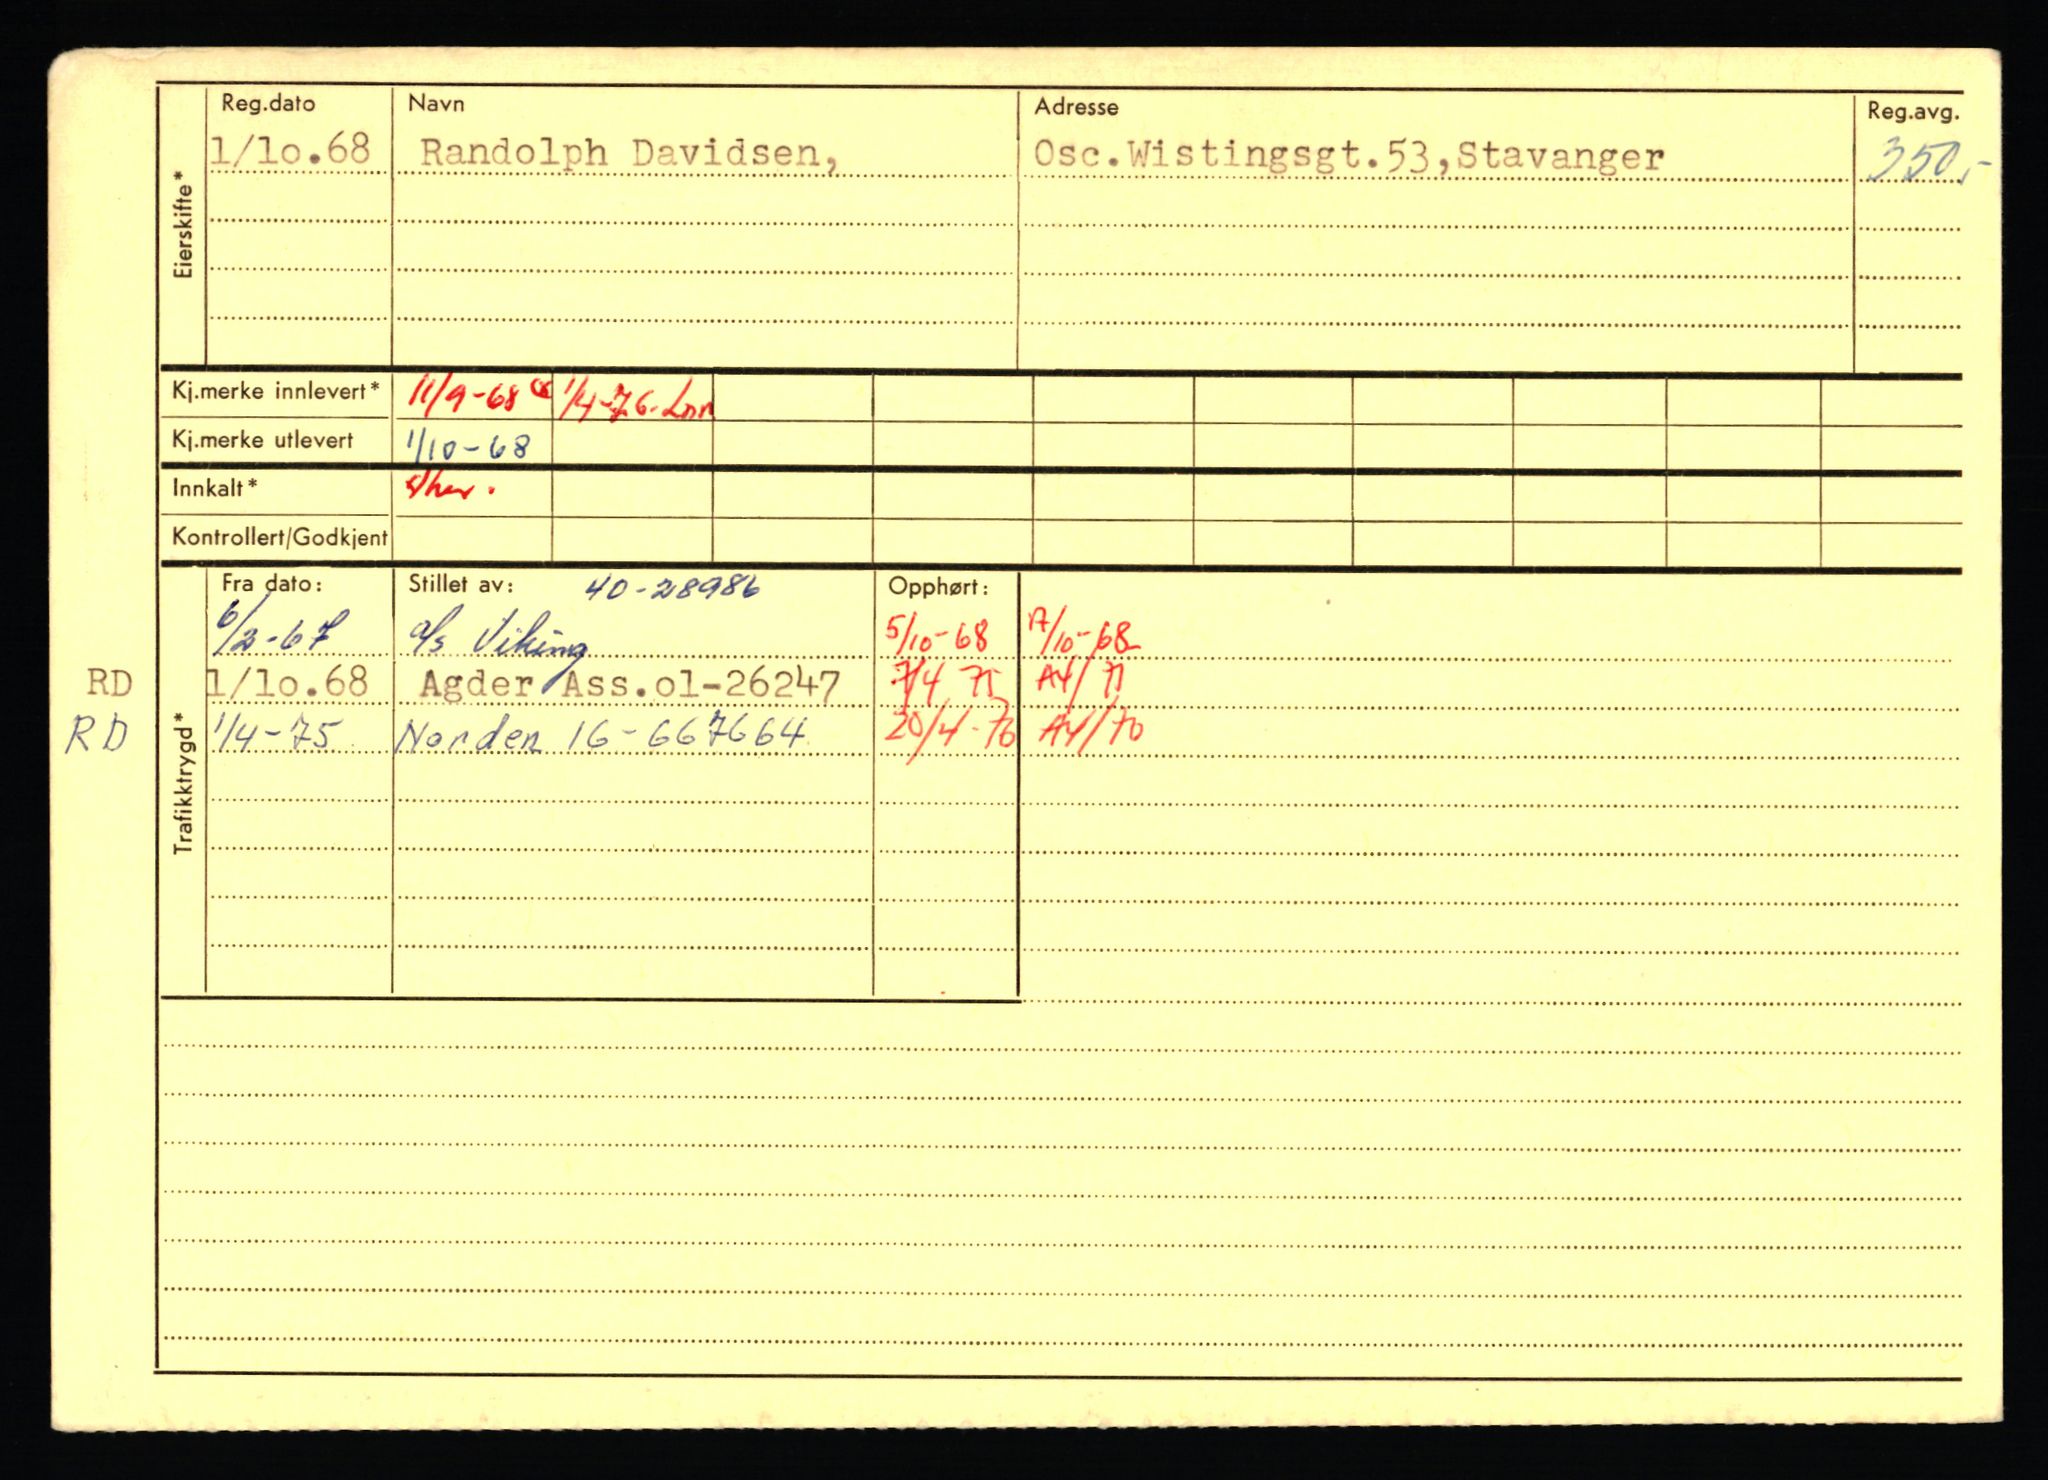 Reg.dato Navn Adresse Reg.avg.
1/1o.68 Randolph Davidsen, Osc.Wistingsgt.53,Stavanger 350,-
Eierskifte*
Kj.merke innlevert* 11/9-68 1/4-76.
Kj.merke utlevert 1/10-68
Innkalt*
Kontrollert/Godkjent
Trafikktrygd*
Fra dato: Stillet av: 40-28986 Opphørt:
6/2-67 a/s Viking 5/10-68 /10-68
RD 1/1o.68 Agder Ass.o1-26247 7/4 75
RD 1/4-75 Norden 16-667664 20/4-76